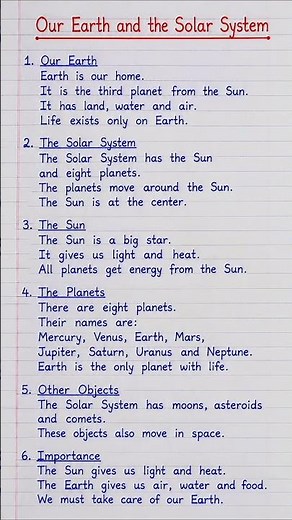 Our Earth and the Solar System
1. Our Earth
Earth is our home.
It is the third planet from the Sun.
It has land, water and air.
Life exists only on Earth.
2. The Solar System
The Solar System has the Sun
and eight planets.
The planets move around the Sun.
The Sun is at the center.
3. The Sun
The Sun is a big star.
It gives us light and heat.
All planets get energy from the Sun.
4. The Planets
There are eight planets.
Their names are:
Mercury, Venus, Earth, Mars,
Jupiter, Saturn, Uranus and Neptune.
Earth is the only planet with life.
5. Other Objects
The Solar System has moons, asteroids
and comets.
These objects also move in space.
6. Importance
The Sun gives us light and heat.
The Earth gives us air, water and food.
We must take care of our Earth.